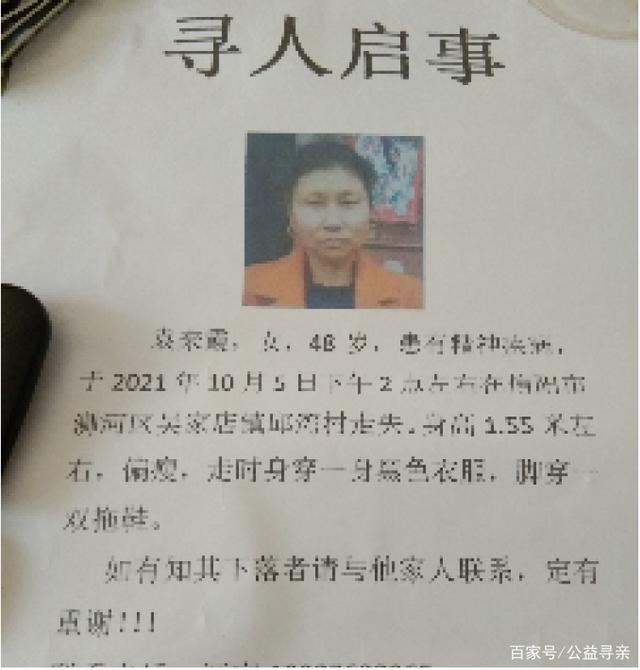 寻人启事
袁家霞，女，48岁，患有精神疾病，
于2021年10月5日下午2点左右在信阳市
浉河区吴家店镇邱湾村走失.身高1.55米左
右，偏瘦，走时身穿一身黑色衣服，脚穿一
双拖鞋。
如有知其下落者请与他家人联系，定有
重谢!!!
百家号/公益寻亲